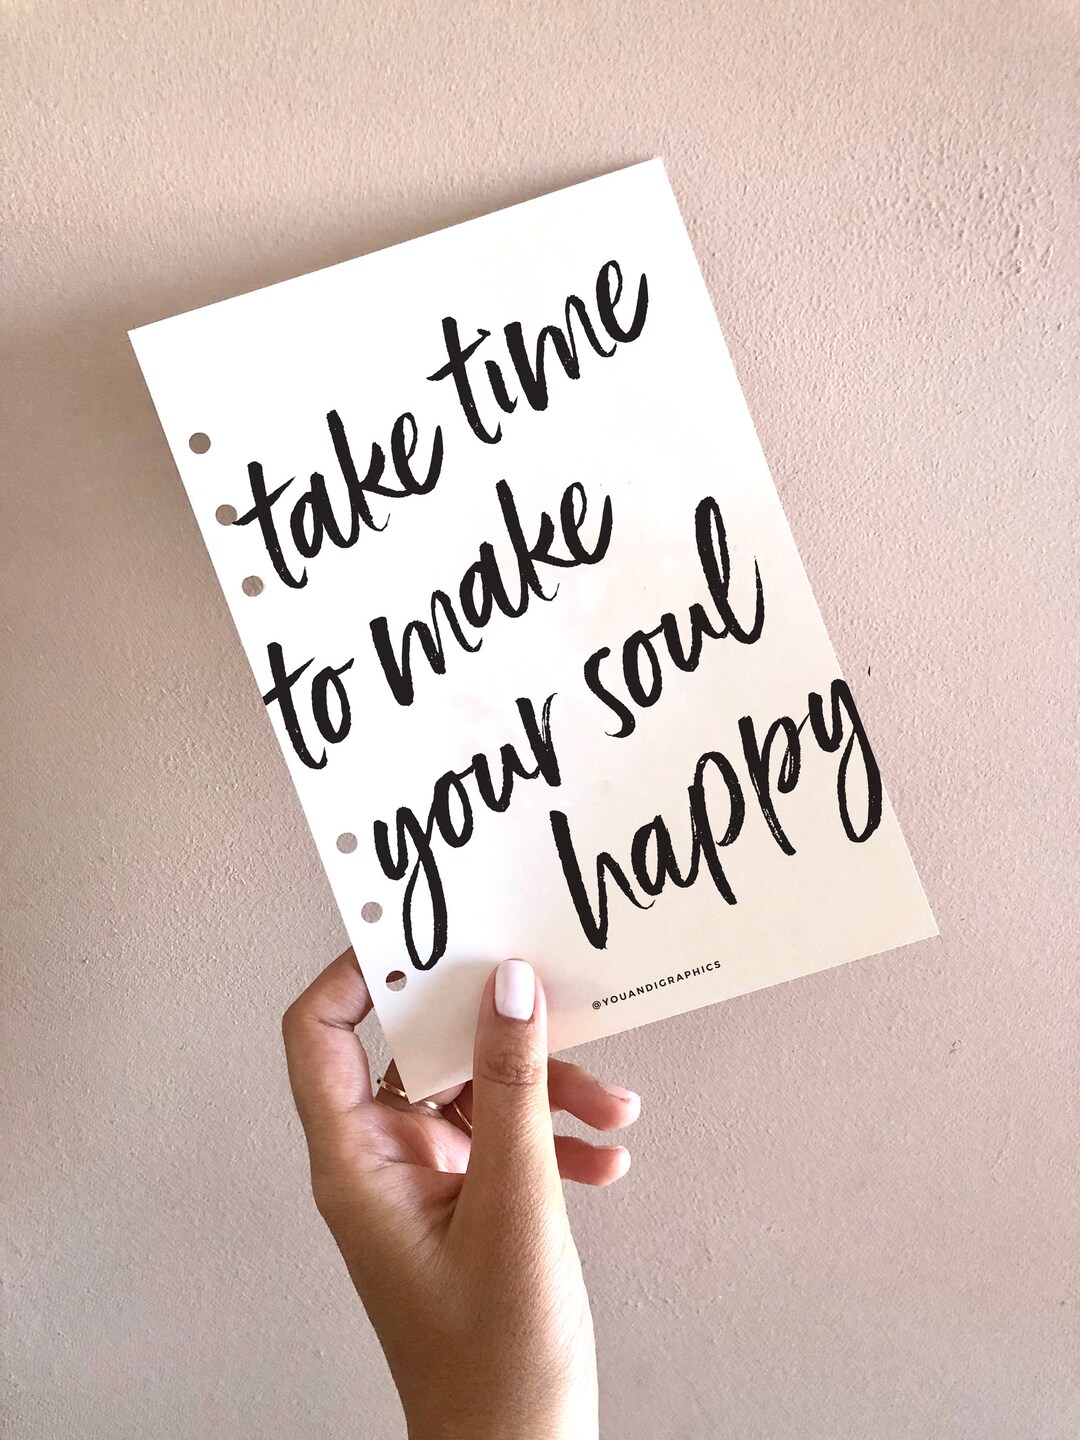 take time
to make
your soul
happy
@YOUANDIGRAPHICS